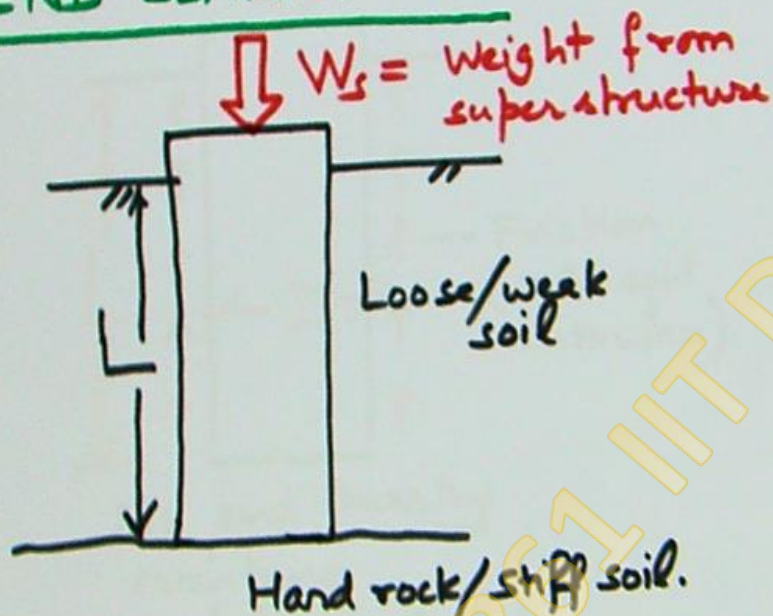 W_s = Weight from
superstructure
Loose/weak
soil
L
Hard rock/stiff soil.
61 IIT